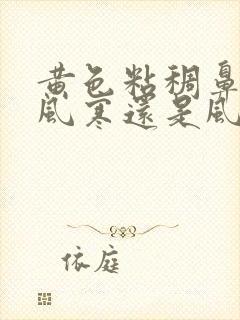 黄色粘稠鼻
風寒還是風
依庭